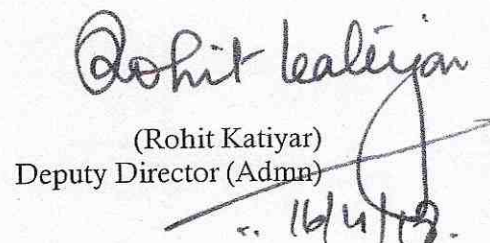 Rohit Katiyar
(Rohit Katiyar)
Deputy Director (Admn)